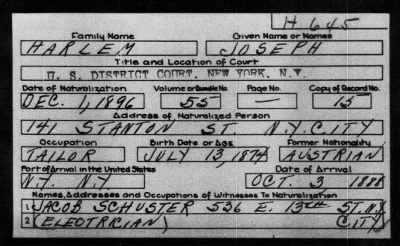 H 645
Family Name Given Name or Names
HARLEM JOSEPH
Title and Location of Court
U. S. DISTRICT COURT, NEW YORK, N.Y.
Date of Naturalization Volume or Bundle No. Page No. Copy of Record No.
DEC. 1, 1896 55 — 15
Address of Naturalized Person
141 STANTON ST. N.Y. CITY
Occupation Birth Date or Age Former Nationality
TAILOR JULY 13, 1874 AUSTRIAN
Port of Arrival in the United States Date of Arrival
N.Y. N.Y. OCT. 3, 1888
Names, Addresses and Occupations of Witnesses To Naturalization
1 JACOB SCHUSTER 536 E. 13TH ST. N.Y.
2 (ELECTRCIAN) CITY